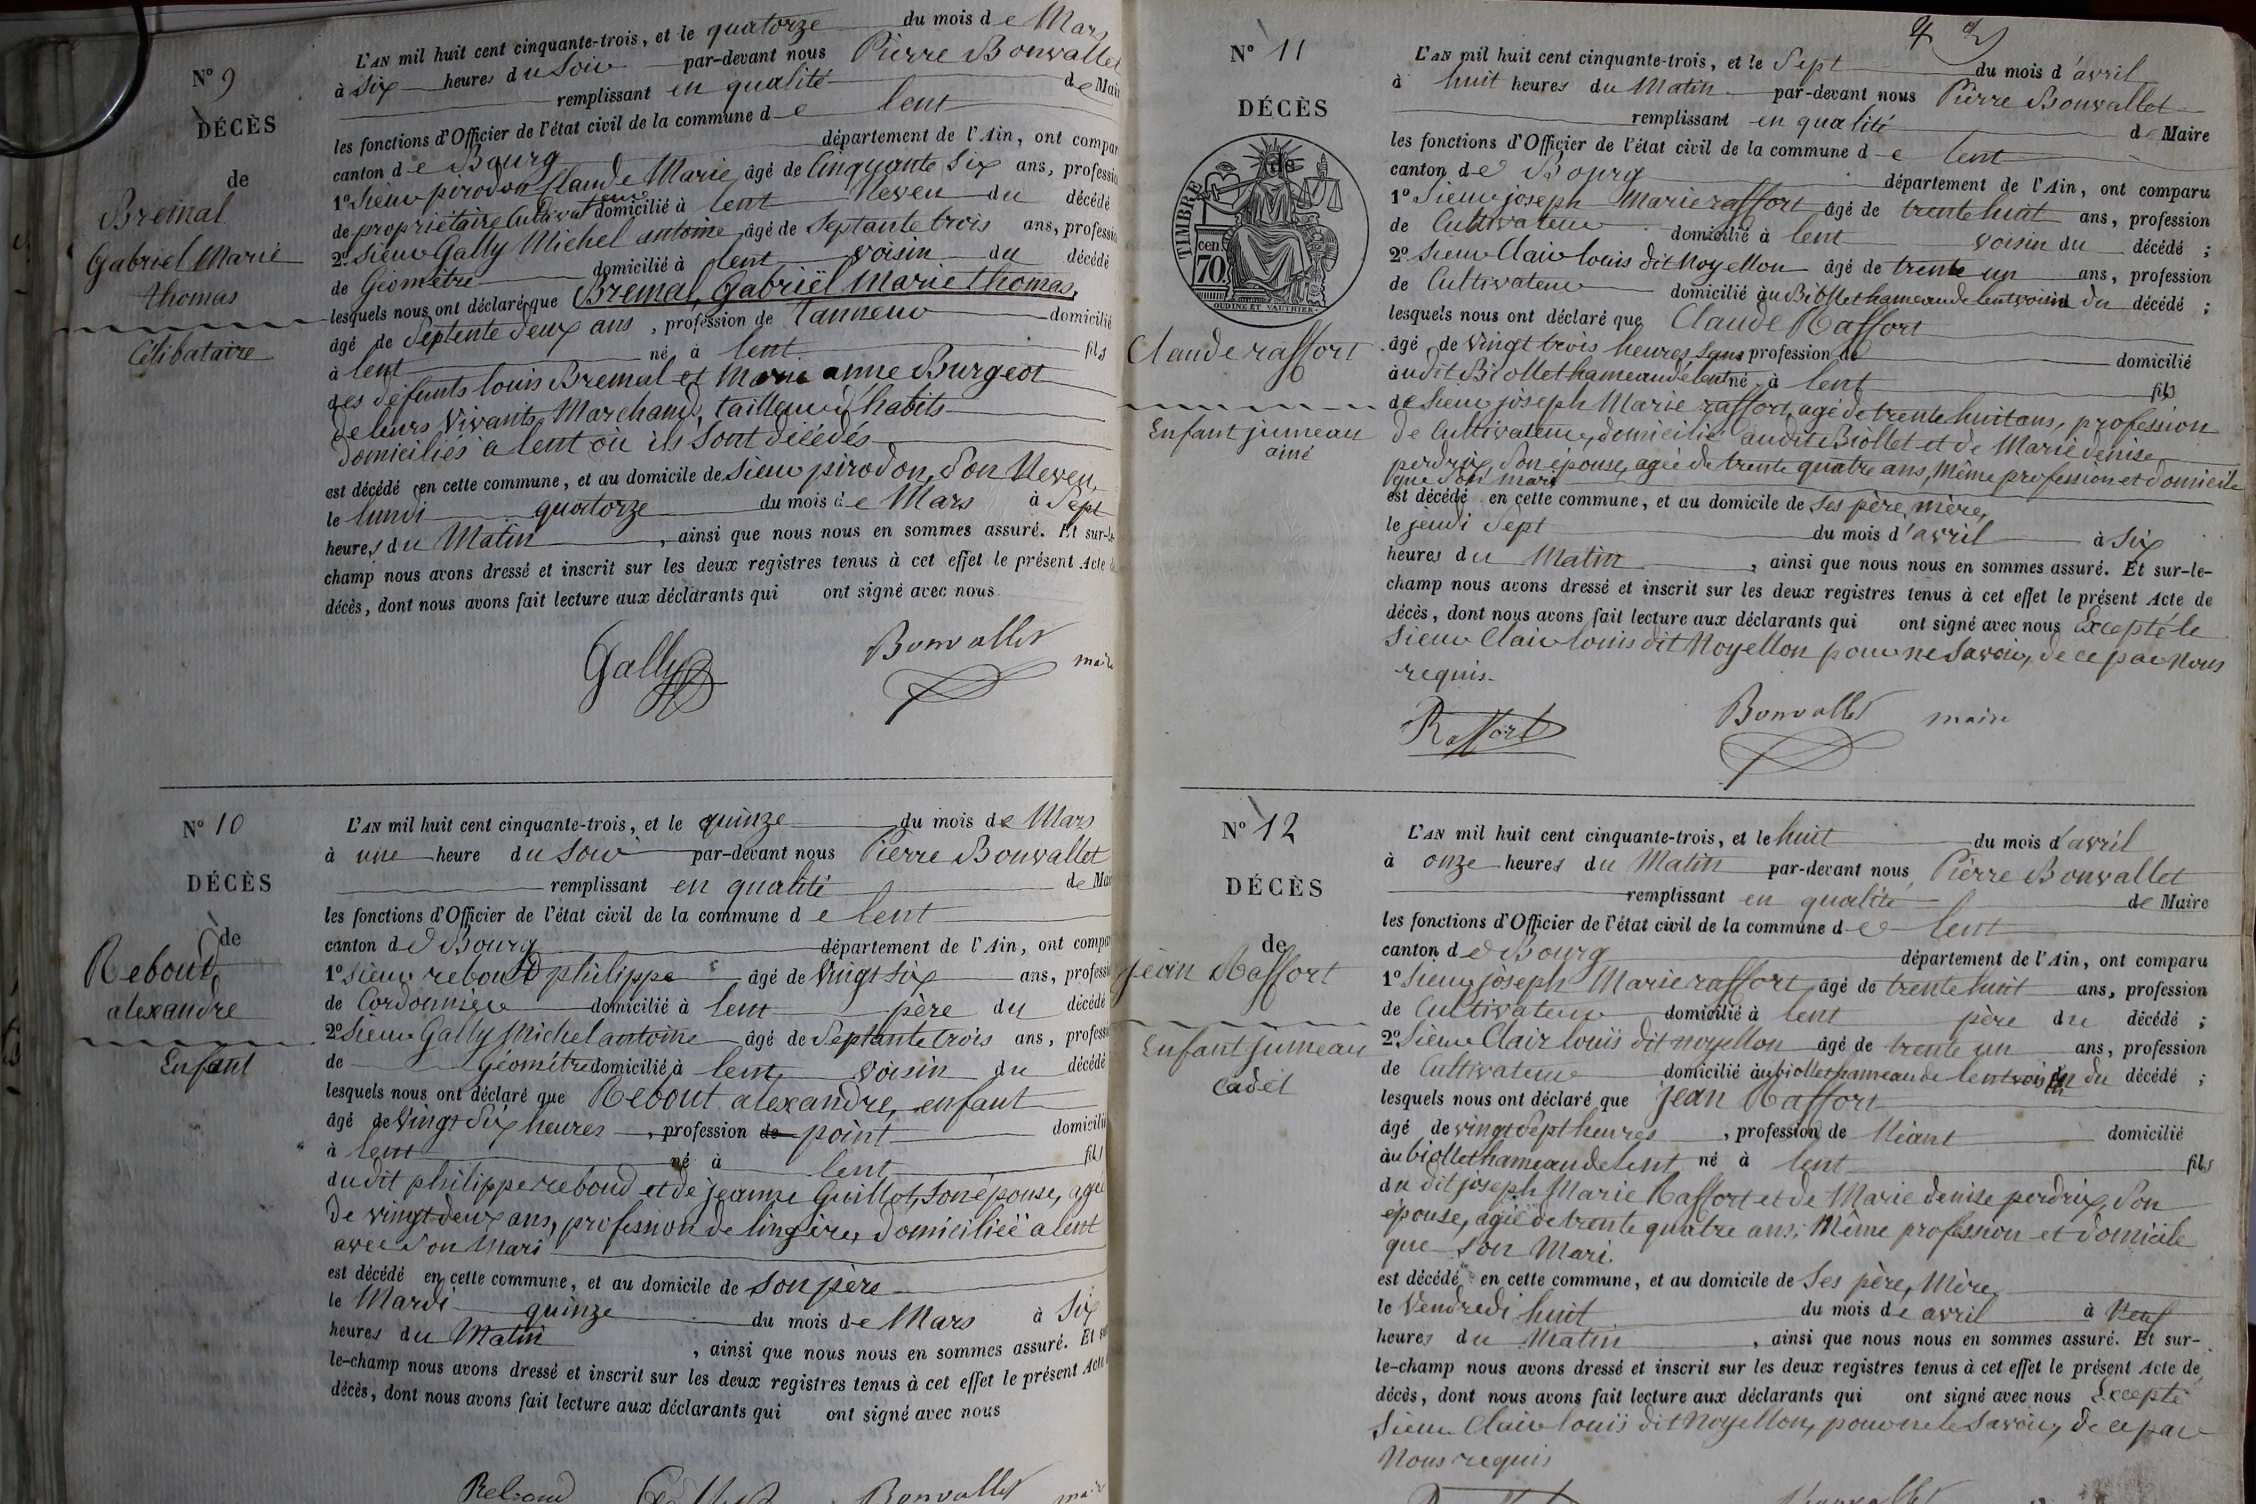 N° 9
DÉCÈS
de
Bremal
Gabriel Marie
thomas
Célibataire
L'AN mil huit cent cinquante-trois, et le quatorze du mois de Mars
à six heures du Soir par-devant nous Pierre Bonvallet
remplissant en qualité de Mair
les fonctions d'Officier de l'état civil de la commune de lent
canton de Bourg département de l'Ain, ont compar
1° Sieur pirodon Claude Marie âgé de Cinquante six ans, professio
de propriétaire Cultivateur domicilié à lent Neveu du décédé
2° Sieur Gally Michel antoine âgé de Septante trois ans, professio
de Géomètre domicilié à lent voisin du décédé
lesquels nous ont déclaré que Bremal, Gabriël Marie thomas,
âgé de Septente deux ans, profession de tanneur domicilié
à lent né à lent fils
des défunts louis Bremal et Marie anne Burgeot
de leurs Vivants Marchand, tailleur d'habits
domiciliés à lent où ils sont décédés
est décédé en cette commune, et au domicile de Sieur pirodon, Son Neveu,
le lundi quatorze du mois de Mars à Sept
heures du Matin, ainsi que nous nous en sommes assuré. Et sur-le-
champ nous avons dressé et inscrit sur les deux registres tenus à cet effet le présent Acte de
décès, dont nous avons fait lecture aux déclarants qui ont signé avec nous
Gally Bonvallet maire
N° 10
DÉCÈS
de
Reboud,
alexandre
Enfant
L'AN mil huit cent cinquante-trois, et le quinze du mois de Mars
à une heure du Soir par-devant nous Pierre Bonvallet
remplissant en qualité de Mai
les fonctions d'Officier de l'état civil de la commune de lent
canton de Bourg département de l'Ain, ont compar
1° Sieur reboud philippe âgé de Vingt Six ans, professi
de Cordonnier domicilié à lent père du décédé
2° Sieur Gally Michel antoine âgé de Septante trois ans, professi
de Géomètre domicilié à lent voisin du décédé
lesquels nous ont déclaré que Rebout alexandre, enfant
âgé de Vingt Six heures, profession de point domicilié
à lent né à lent fils
du dit philippe reboud et de jeanne Guillot, Son épouse, agée
de vingt deux ans, profession de lingère, domiciliée a lent
avec Son Mari
est décédé en cette commune, et au domicile de Son père
le Mardi quinze du mois de Mars à Six
heures du Matin, ainsi que nous nous en sommes assuré. Et sur
le-champ nous avons dressé et inscrit sur les deux registres tenus à cet effet le présent Acte
décès, dont nous avons fait lecture aux déclarants qui ont signé avec nous
Reboud Gally Bonvallet maire
N° 11
DÉCÈS
de
TIMBRE
cen. 70.
OUDINÉ ET VAUTHIER
Claude raffort
Enfant jumeau
ainé
L'AN mil huit cent cinquante-trois, et le Sept du mois d'avril
à huit heures du Matin par-devant nous Pierre Bonvallet
remplissant en qualité de Maire
les fonctions d'Officier de l'état civil de la commune de lent
canton de Bourg département de l'Ain, ont comparu
1° Sieur joseph Marie raffort âgé de trente huit ans, profession
de Cultivateur domicilié à lent voisin du décédé ;
2° Sieur Clair louis dit Noyellon âgé de trente un ans, profession
de Cultivateur domicilié au Biollet hameau de lent voisin du décédé ;
lesquels nous ont déclaré que Claude Raffort
âgé de Vingt trois heures, Sans profession de domicilié
audit Biollet hameau de lent né à lent fils
de Sieur joseph Marie raffort, agé de trente huit ans, profession
de Cultivateur, domicilié audit Biollet et de Marie denise
perdrix, Son épouse, agée de trente quatre ans, Même profession et domicile
que Son mari
est décédé en cette commune, et au domicile de Ses père, mère,
le jeudi Sept du mois d'avril à Six
heures du Matin, ainsi que nous nous en sommes assuré. Et sur-le-
champ nous avons dressé et inscrit sur les deux registres tenus à cet effet le présent Acte de
décès, dont nous avons fait lecture aux déclarants qui ont signé avec nous Excepté le
Sieur Clair louis dit Noyellon pour ne Savoir, de ce par Nous
requis.
Raffort Bonvallet maire
N° 12
DÉCÈS
de
jean Raffort
Enfant jumeau
Cadet
L'AN mil huit cent cinquante-trois, et le huit du mois d'avril
à onze heures du Matin par-devant nous, Pierre Bonvallet
remplissant en qualité de Maire
les fonctions d'Officier de l'état civil de la commune de lent
canton de Bourg département de l'Ain, ont comparu
1° Sieur joseph Marie raffort, âgé de trente huit ans, profession
de Cultivateur domicilié à lent père du décédé ;
2° Sieur Clair louis dit noyellon âgé de trente un ans, profession
de Cultivateur domicilié au biollet hameau de lent voisin du décédé ;
lesquels nous ont déclaré que jean Raffort
âgé de vingt Sept heures, profession de Néant domicilié
au biollet hameau de lent né à lent fils
du dit joseph Marie Raffort et de Marie denise perdrix, Son
épouse, agée de trente quatre ans, Même profession et domicile
que Son Mari.
est décédé en cette commune, et au domicile de Ses père, Mère,
le Vendredi huit du mois de avril à Neuf
heures du Matin, ainsi que nous nous en sommes assuré. Et sur-
le-champ nous avons dressé et inscrit sur les deux registres tenus à cet effet le présent Acte de
décès, dont nous avons fait lecture aux déclarants qui ont signé avec nous Excepté
Sieur Clair louis dit Noyellon, pour ne le Savoir, de ce par
Nous requis